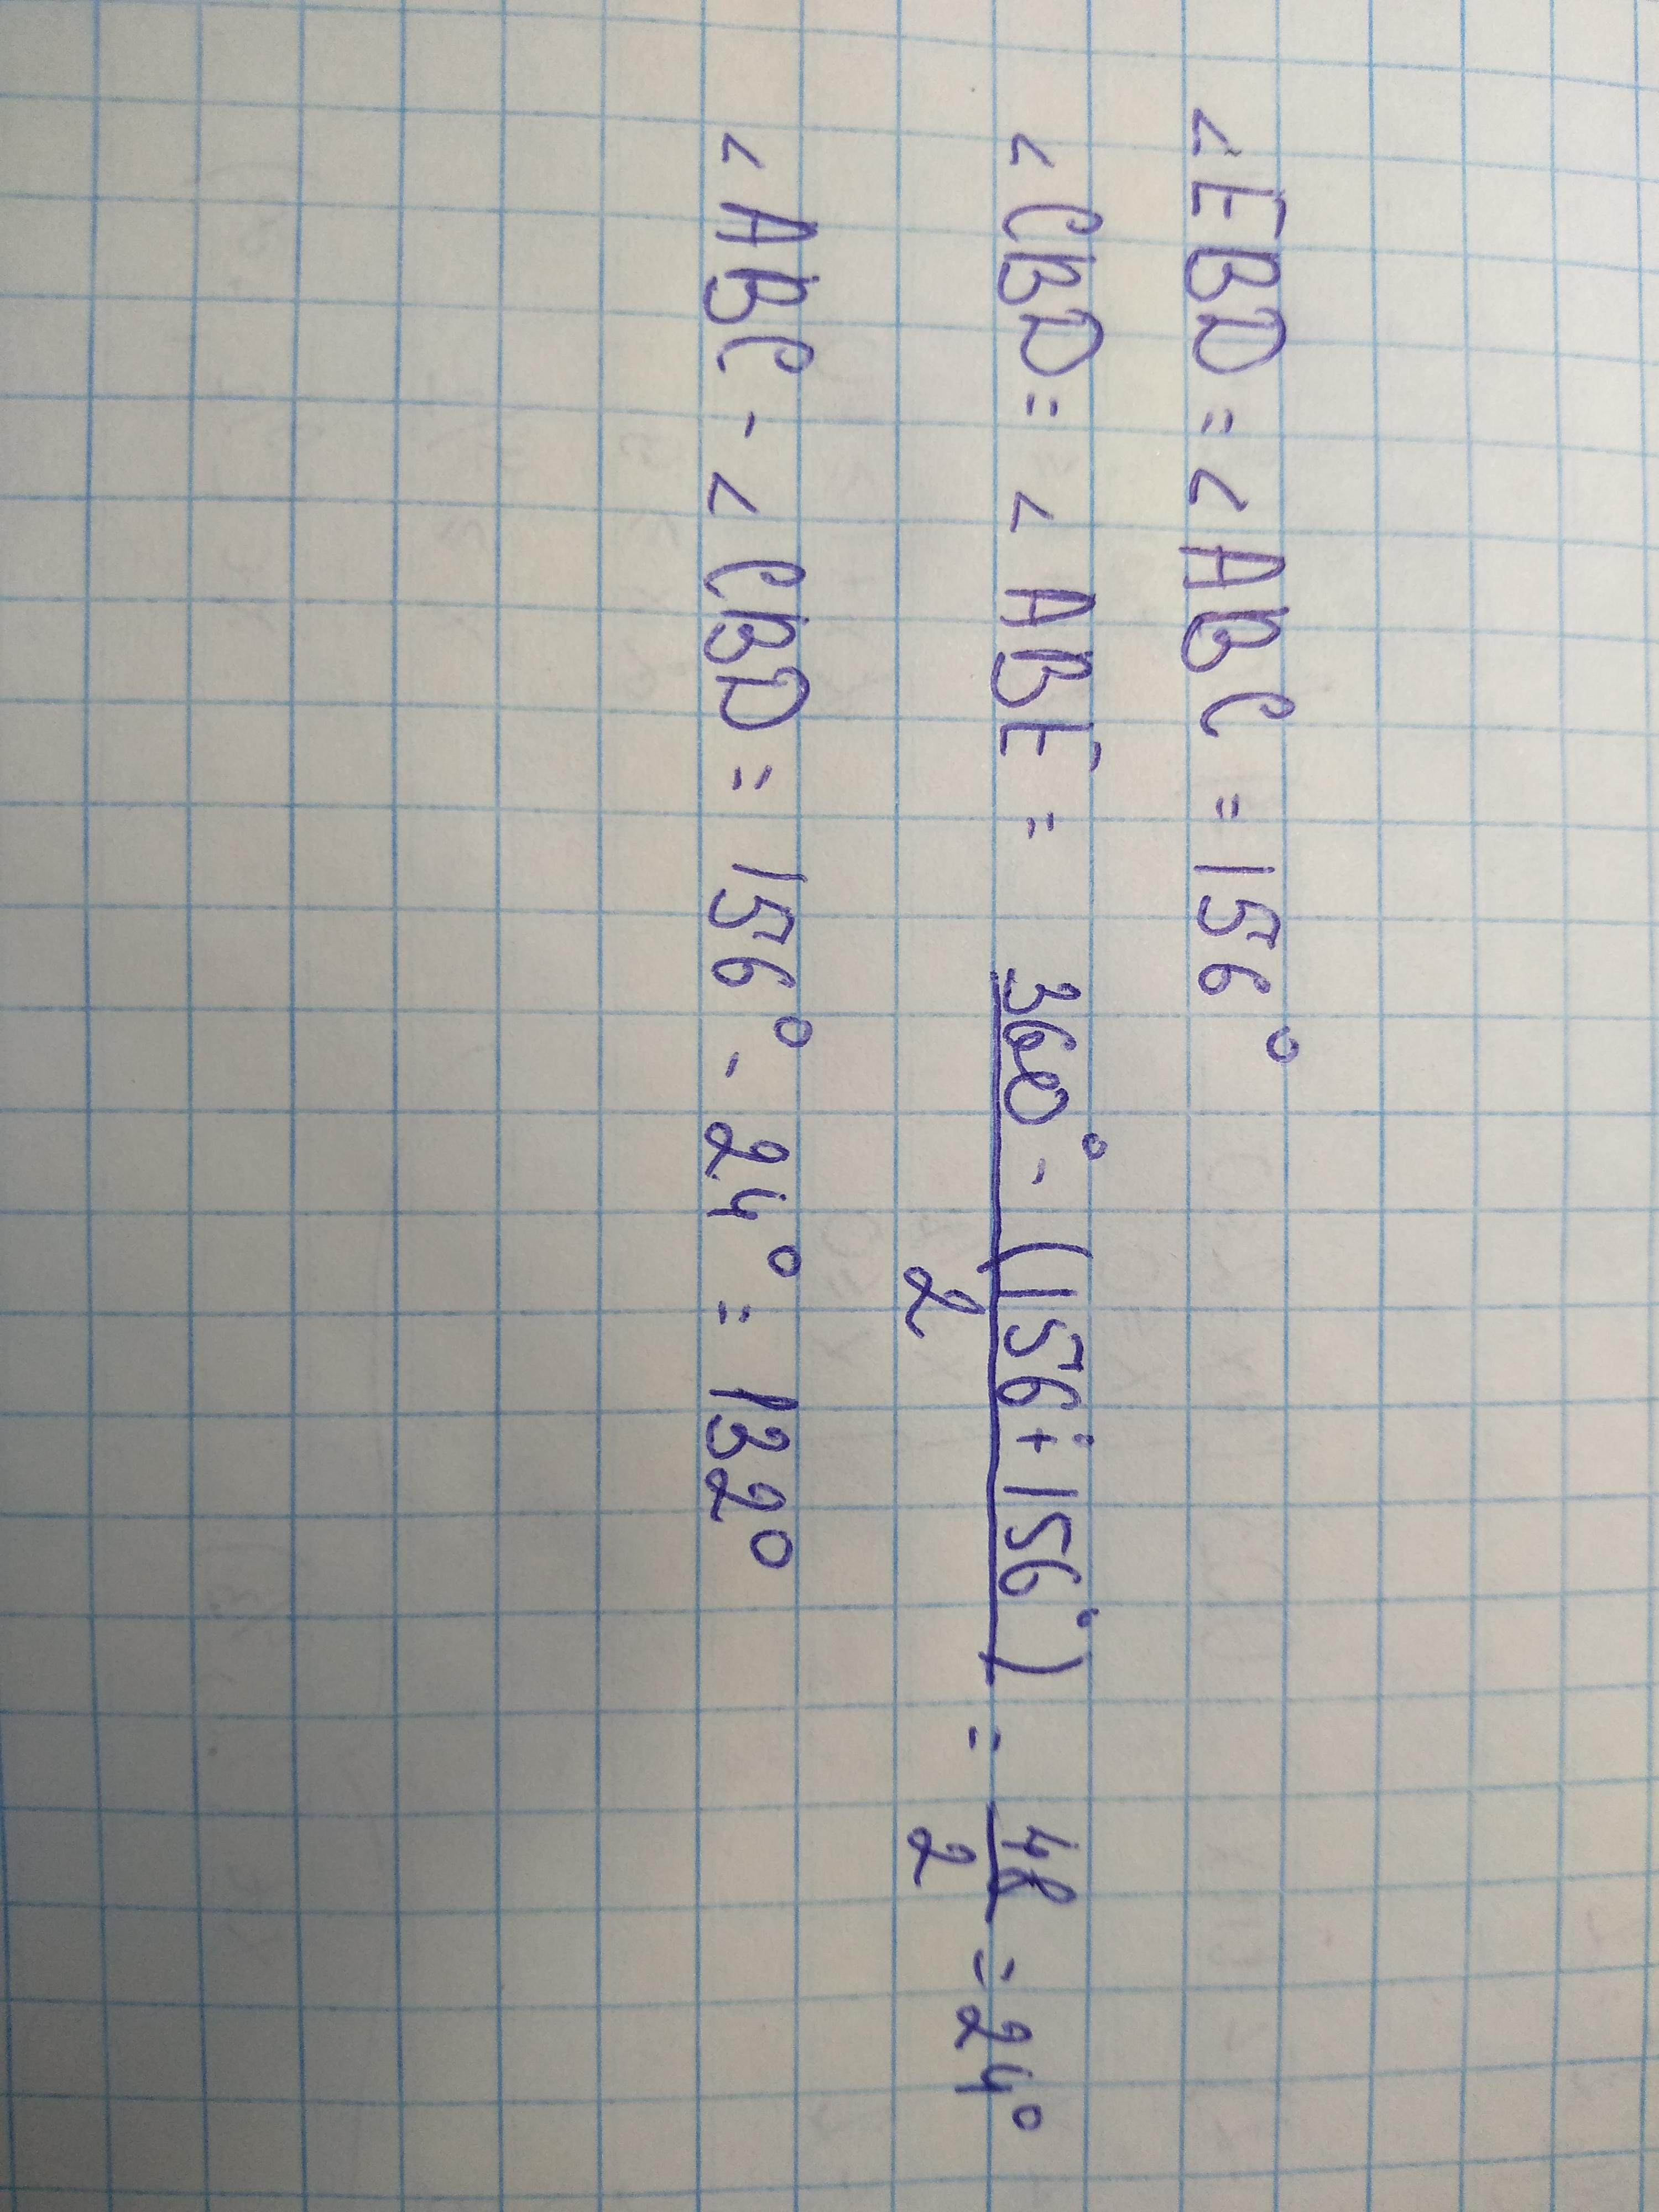 ∠EBD = ∠ABC = 156°
∠CBD = ∠ABE = (360° - (156° + 156°))/2 = 48/2 = 24°
∠ABC - ∠CBD = 156° - 24° = 132°